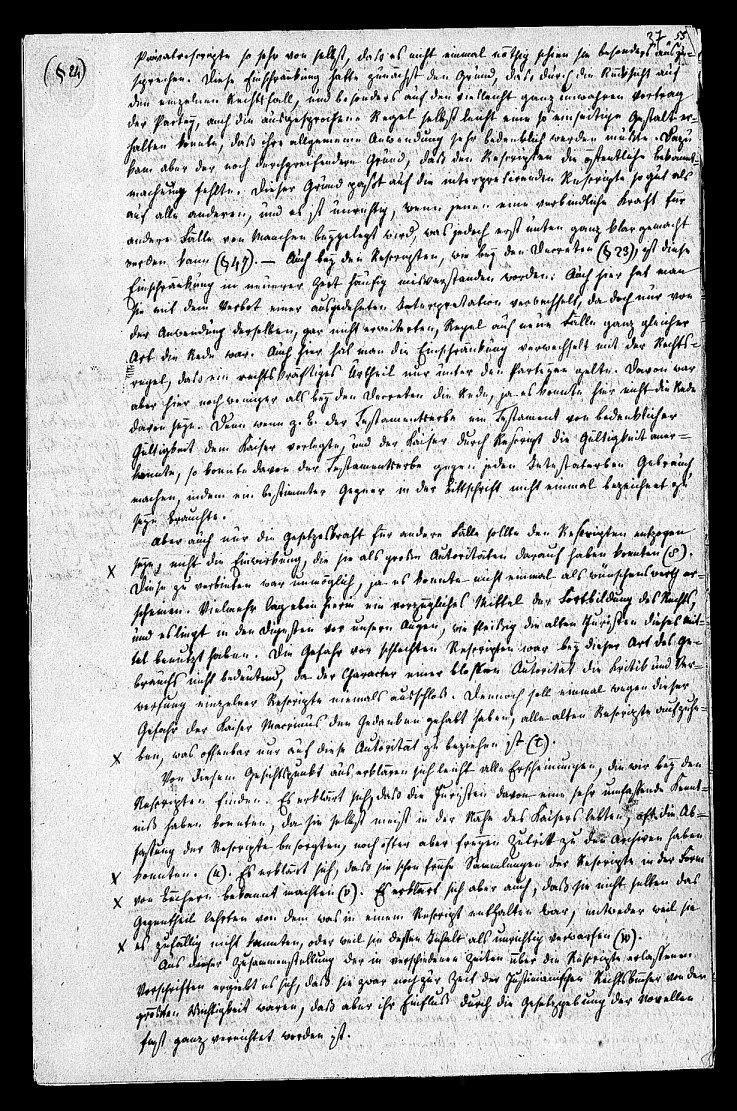 27 55
(§ 24)
Privatrescripte so sehr von selbst, daß es nicht einmal nöthig schien sie besonders auszu-
sprechen. Diese Einschränkung hatte zunächst den Grund, daß durch die Rücksicht auf
den einzelnen Rechtsfall, und besonders auf den vielleicht ganz unwahren Vortrag
der Partey, auch die ausgesprochene Regel selbst leicht eine so einseitige Gestalt er-
halten konnte, daß ihre allgemeine Anwendung sehr bedenklich werden mußte. Dazu
kam aber der noch durchgreifendere Grund, daß den Rescripten die öffentliche Bekannt-
machung fehlte. Dieser Grund paßt auf die interpretirenden Rescripte so gut als
auf alle anderen, und es ist unrichtig, wenn jenen eine verbindliche Kraft für
andere Fälle von Manchen beygelegt wird, was jedoch erst unten ganz klar gemacht
werden kann (§ 47). — Auch bey den Rescripten, wie bey den Decreten (§ 23), ist diese
Einschränkung in neuerer Zeit häufig misverstanden worden. Auch hier hat man
sie mit dem Verbot einer ausgedehnten Interpretation verwechselt, da doch nur von
der Anwendung derselben, gar nicht erweiterten, Regel auf neue Fälle ganz gleicher
Art die Rede war. Auch hier hat man die Einschränkung verwechselt mit der Rechts-
regel, daß ein rechtskräftiges Urtheil nur unter den Parteyen gelte. Davon war
aber hier noch weniger als bey den Decreten die Rede, ja es konnte hier nicht die Rede
davon seyn. Denn wenn z. B. der Testamentserbe ein Testament von bedenklicher
Gültigkeit dem Kaiser vorlegte, und der Kaiser durch Rescript die Gültigkeit aner-
kannte, so konnte davon der Testamentserbe gegen jeden Intestaterben Gebrauch
machen, indem ein bestimmter Gegner in der Bittschrift nicht einmal bezeichnet zu
seyn brauchte.
Aber auch nur die Gesetzeskraft für andere Fälle sollte den Rescripten entzogen
seyn, nicht die Einwirkung, die sie als große Autoritäten darauf haben konnten (s).
Diese zu verbieten war unmöglich, ja es konnte nicht einmal als wünschenswerth er-
scheinen. Vielmehr lag eben hierin ein vorzügliches Mittel der Fortbildung des Rechts,
und es liegt in den Digesten vor unsern Augen, wie fleißig die alten Juristen dieses Mit-
tel benutzt haben. Die Gefahr vor schlechten Rescripten war bey dieser Art des Ge-
brauchs nicht bedeutend, da der Character einer bloßen Autorität die Kritik und Ver-
werfung einzelner Rescripte niemals ausschloß. Dennoch soll einmal wegen dieser
Gefahr der Kaiser Macrinus den Gedanken gehabt haben, alle alten Rescripte aufzuhe-
ben, was offenbar nur auf diese Autorität zu beziehen ist (t).
Von diesem Gesichtspunkt aus erklären sich leicht alle Erscheinungen, die wir bey den
Rescripten finden. Es erklärt sich, daß die Juristen davon eine sehr umfassende Kennt-
niß haben konnten, da sie selbst meist in der Nähe des Kaisers lebten, oft die Ab-
fassung der Rescripte besorgten, noch öfter aber freyen Zutritt zu den Archiven haben
konnten. (u). Es erklärt sich, daß sie schon frühe Sammlungen der Rescripte in der Form
von Büchern bekannt machten (v). Es erklärt sich aber auch, daß sie nicht selten das
Gegentheil lehrten von dem was in einem Rescript enthalten war, entweder weil sie
es zufällig nicht kannten, oder weil sie dessen Inhalt als unrichtig verwarfen (w).
Aus dieser Zusammenstellung der in verschiedenen Zeiten über die Rescripte erlassenen
Vorschriften ergiebt es sich, daß sie zwar noch zur Zeit der Justinianischen Rechtsbücher von der
größten Wichtigkeit waren, daß aber ihr Einfluß durch die Gesetzgebung der Novellen
fast ganz vernichtet worden ist.